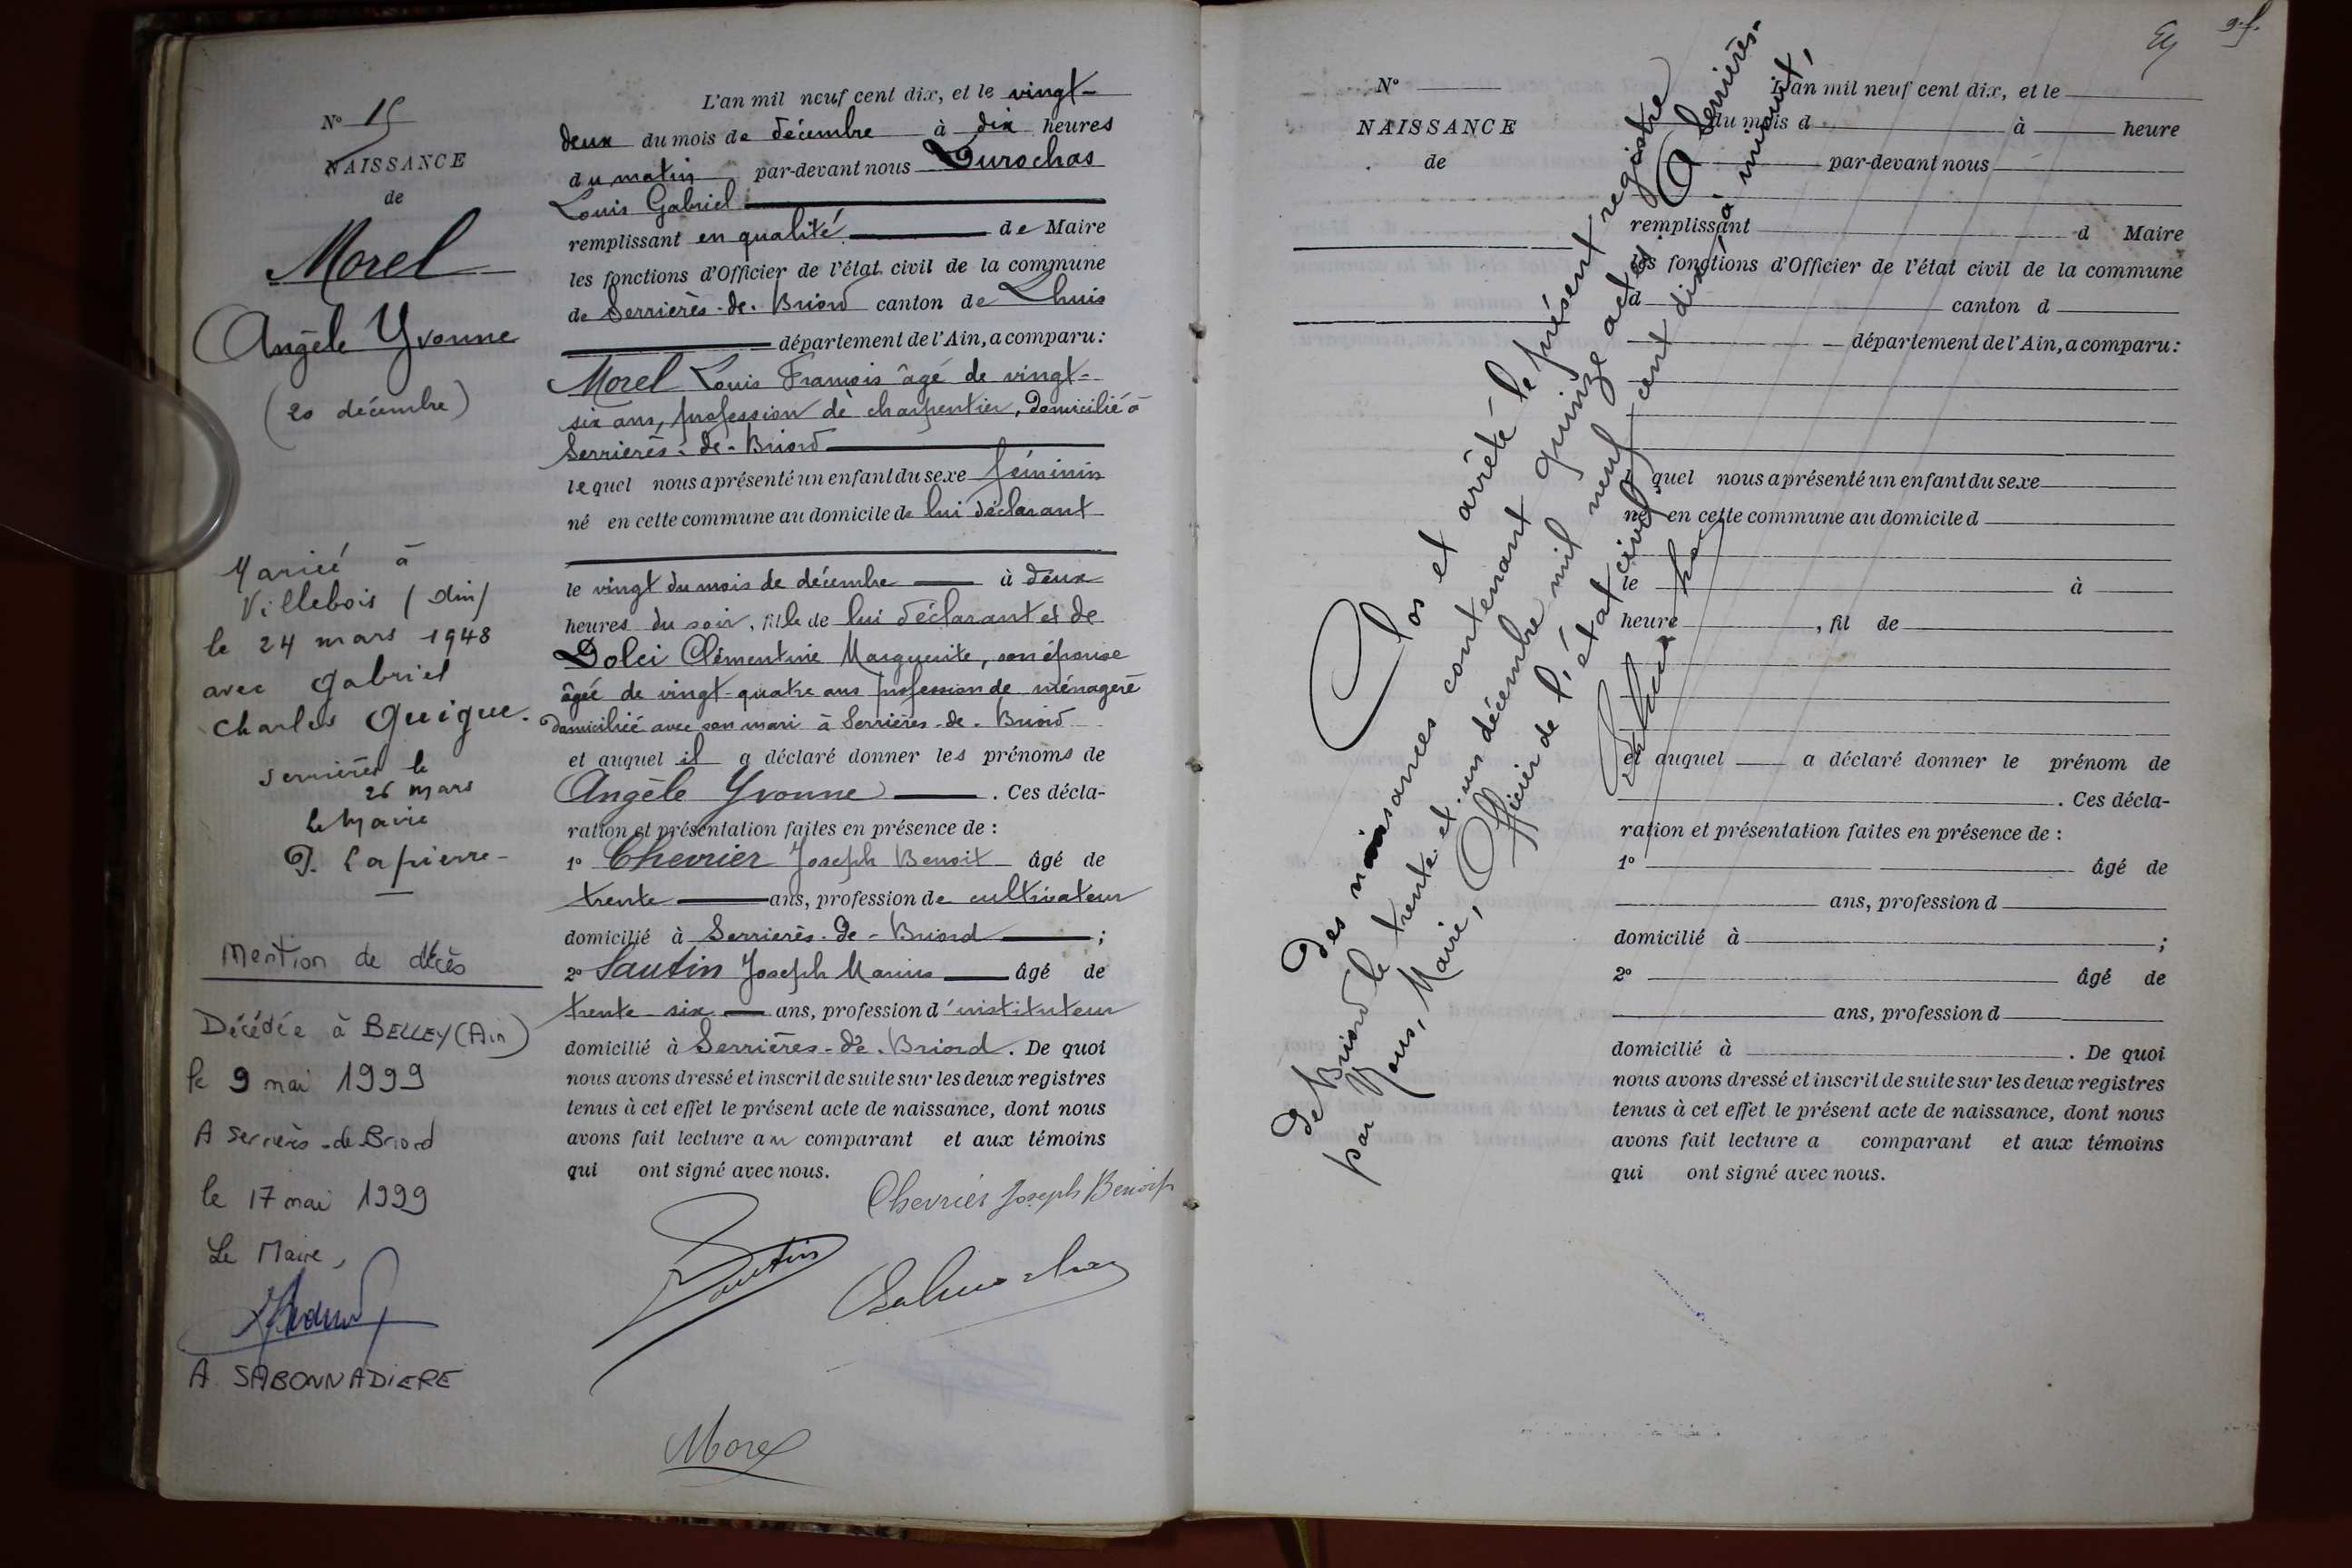 N° 15
NAISSANCE
de
Morel
Angèle Yvonne
(20 décembre)
Mariée à
Villebois (Ain)
le 24 mars 1948
avec Gabriel
Charles Quigue.
Serrières le
26 mars
Le Maire
P. Lapierre
Mention de décès
Décédée à BELLEY (Ain)
le 9 mai 1999
A Serrières-de-Briord
le 17 mai 1999
Le Maire,
A. SABONNADIERE
L'an mil neuf cent dix, et le vingt-
deux du mois de décembre à dix heures
du matin par-devant nous Durochas
Louis Gabriel
remplissant en qualité de Maire
les fonctions d'Officier de l'état civil de la commune
de Serrières-de-Briord canton de Lhuis
département de l'Ain, a comparu :
Morel Louis François âgé de vingt-
six ans, profession de charpentier, domicilié à
Serrières-de-Briord
lequel nous a présenté un enfant du sexe féminin
né en cette commune au domicile de lui déclarant
le vingt du mois de décembre à deux
heures du soir, fille de lui déclarant et de
Dolci Clémentine Marguerite, son épouse
âgée de vingt-quatre ans profession de ménagère
domiciliée avec son mari à Serrières-de-Briord
et auquel il a déclaré donner les prénoms de
Angèle Yvonne . Ces décla-
ration et présentation faites en présence de :
1° Chevrier Joseph Benoit âgé de
trente ans, profession de cultivateur
domicilié à Serrières-de-Briord ;
2° Sautin Joseph Marius âgé de
trente six ans, profession d'instituteur
domicilié à Serrières-de-Briord. De quoi
nous avons dressé et inscrit de suite sur les deux registres
tenus à cet effet le présent acte de naissance, dont nous
avons fait lecture au comparant et aux témoins
qui ont signé avec nous.
Chevrier Joseph Benoit
Sautin
Morel
N°
NAISSANCE
de
L'an mil neuf cent dix, et le
du mois d à heure
par-devant nous
remplissant d Maire
les fonctions d'Officier de l'état civil de la commune
d canton d
département de l'Ain, a comparu :
quel nous a présenté un enfant du sexe
né en cette commune au domicile d
le à
heure , fil de
et auquel a déclaré donner le prénom de
. Ces décla-
ration et présentation faites en présence de :
1° âgé de
ans, profession d
domicilié à ;
2° âgé de
ans, profession d
domicilié à . De quoi
nous avons dressé et inscrit de suite sur les deux registres
tenus à cet effet le présent acte de naissance, dont nous
avons fait lecture a comparant et aux témoins
qui ont signé avec nous.
Clos et arrêté le présent registre
des naissances contenant quinze actes. A Serrières-
de Briord le trente et un décembre mil neuf cent dix à minuit,
par Nous, Maire, Officier de l'état civil